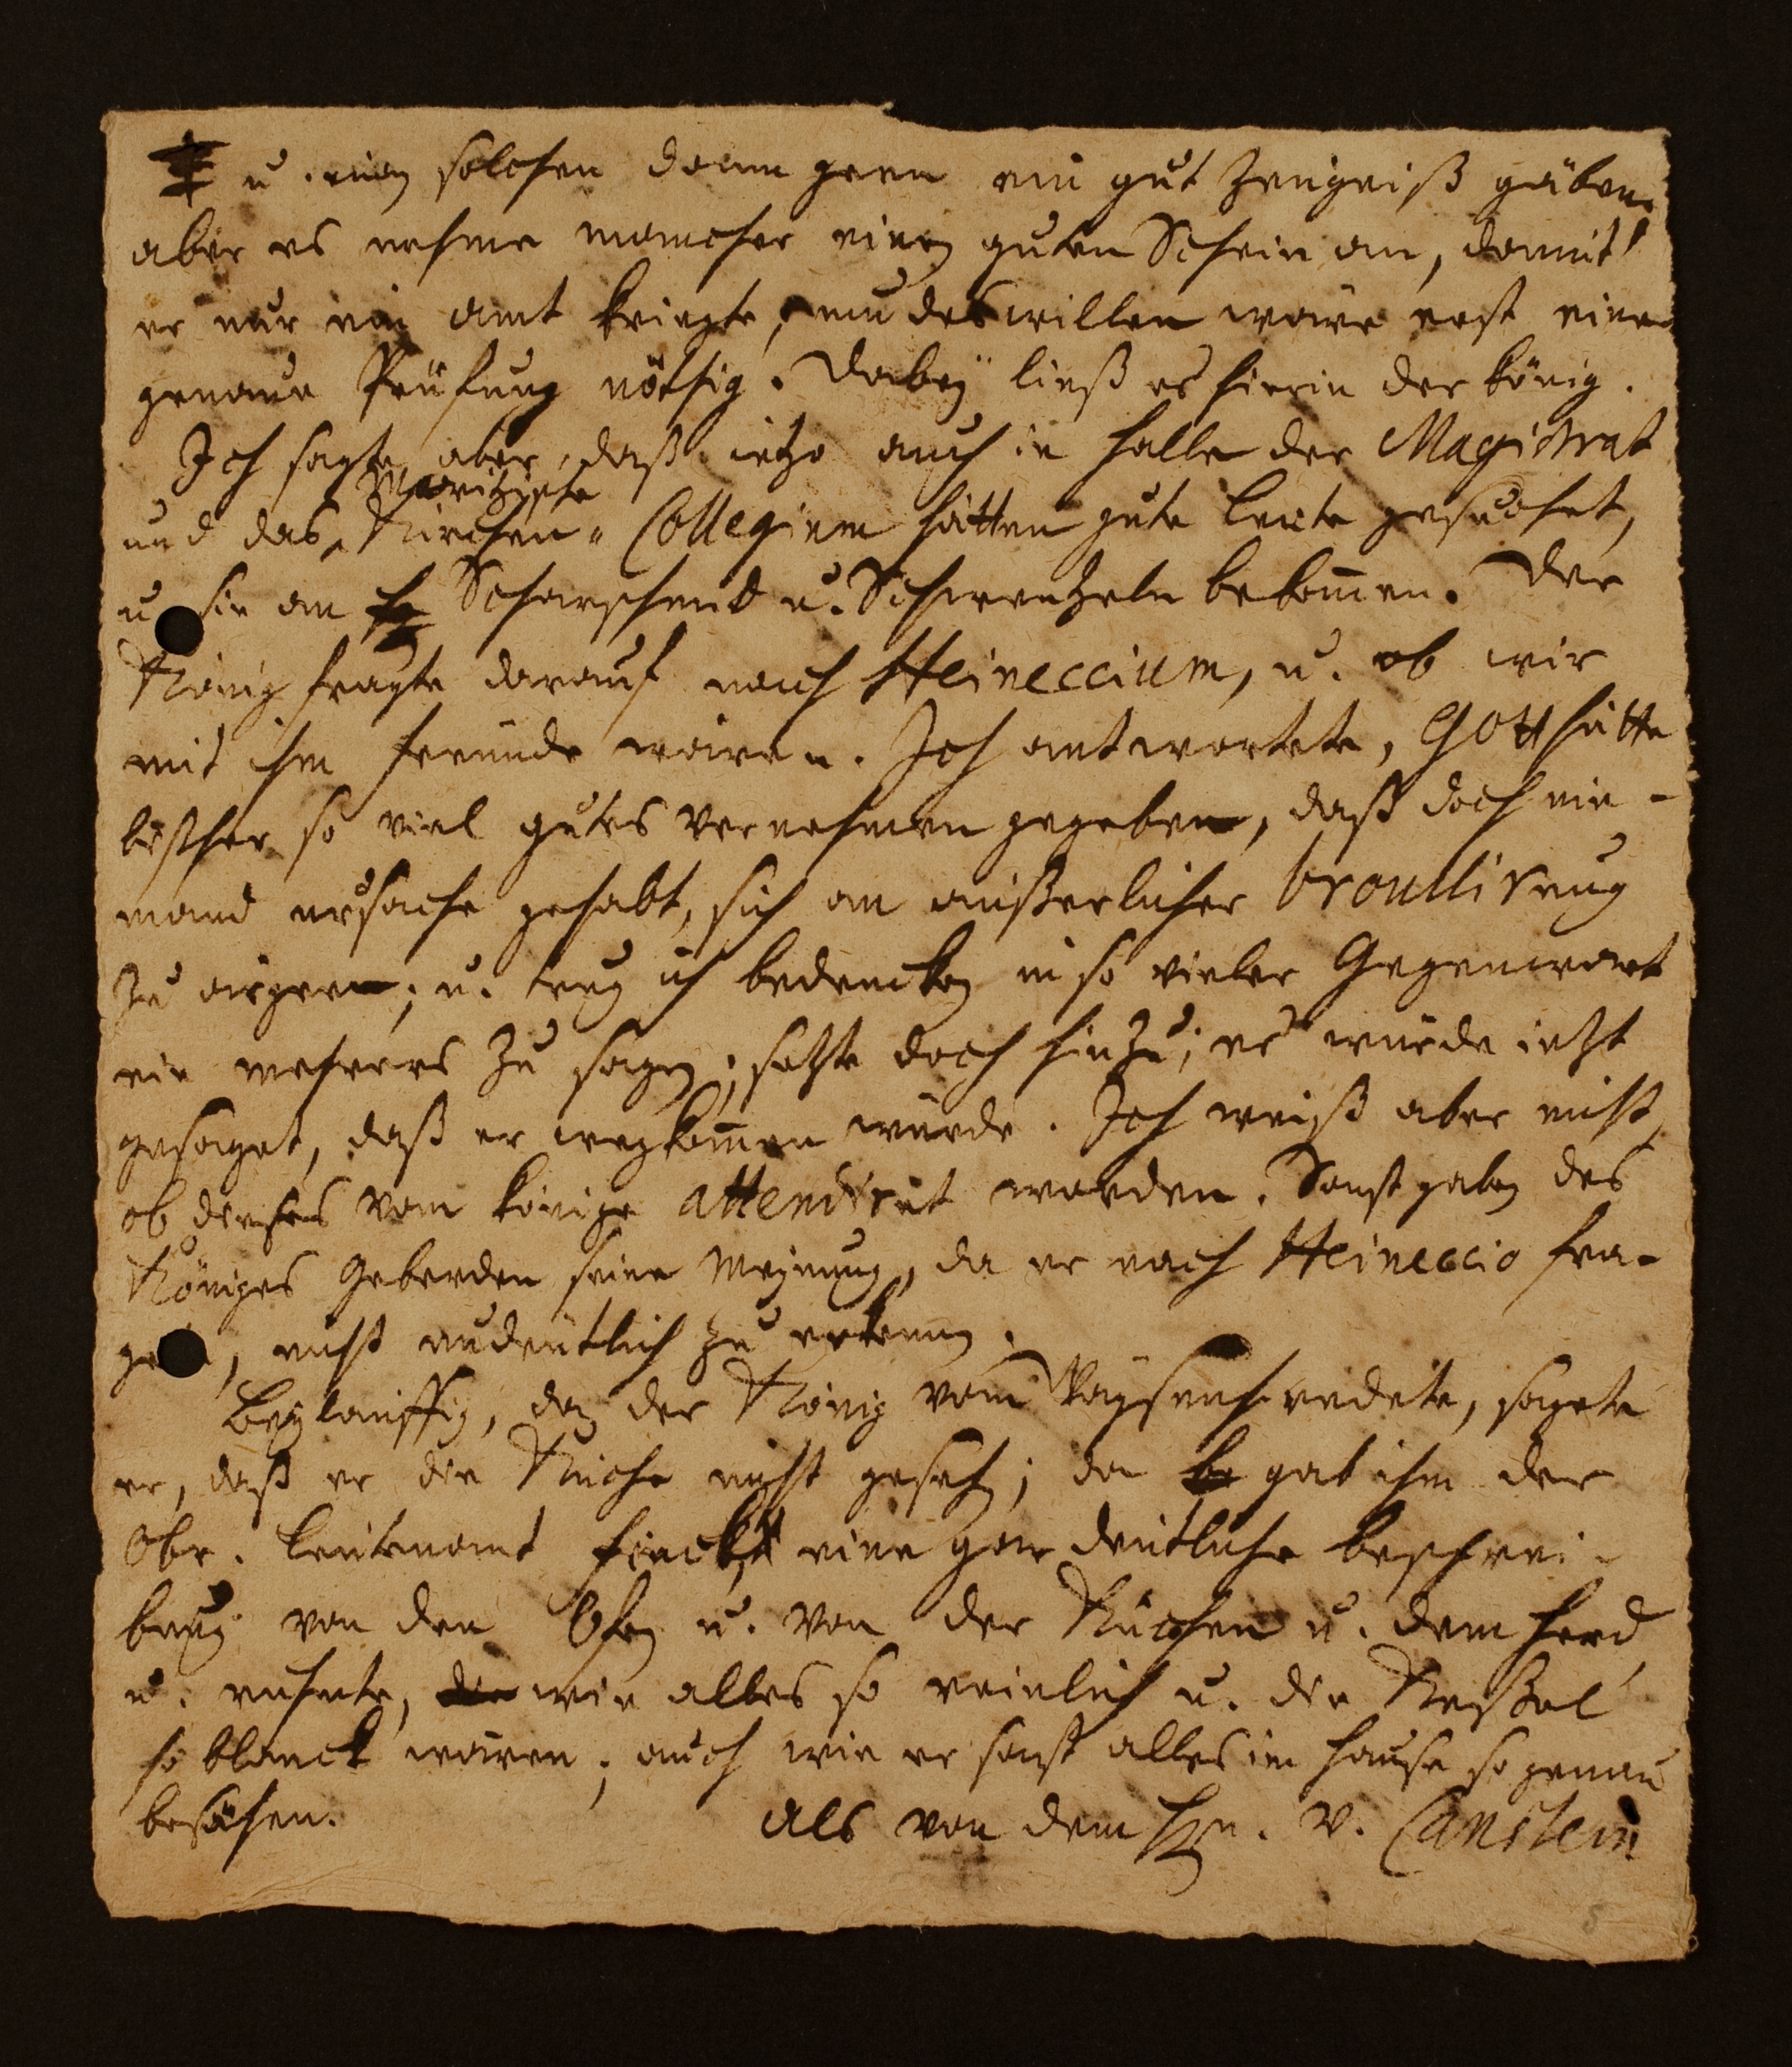 u. einen solchen denn gern ein gut Zeugniß gäben.
aber es nehme mancher einen guten Schein an, damit
er nur ein amt kriegte, um deswillen wäre erst eine
genaue Prüfung nöthig. Dabey ließ es hierin der König.
Ich sagte aber, daß ietzo auch in Halle der Magistrat
Moritzische
und das Kirchen-Collegium hätten gute Leute gesuchet,
u sie an Scharschmid u. Schwentzeln bekom̄en. Der
König fragte darauf nach Heineccium, u. ob wir
mit ihm freunde wären. Ich antwortete, GOtt hätte
bißher so viel gutes vernehmen gegeben, daß doch nie-
mand ursache gehabt, sich an äußerlicher brouillirung
zu ärgern; u. trug ich bedencken in so vieler Gegenwart
ein mehrers zu sagen; setzte doch hinzu; es würde ietzt
gesaget, daß er wegkom̄en würde. Ich weiß aber nicht,
ob dieses vom Könige attendiret worden. Sonst gaben des
Königes Geberden seine Meynung, da er nach Heineccio fra-
gete, nicht undeutlich zu erkennen.
Beyläuffig, da der König vom Wäysenh. redete, sagete
er, daß er die Küche nicht gesehen; da gab ihm der
Obr. Leutenant eine gar deutliche beschrei-
bung von den Ofen u. von der Küchen u. dem Herd
u. rühmte, wie alles so reinlich u. die Keßel
so blanck wären; auch wie er sonst alles im Hause so genau
besähen.
Als von dem Hrn. v. Canstein